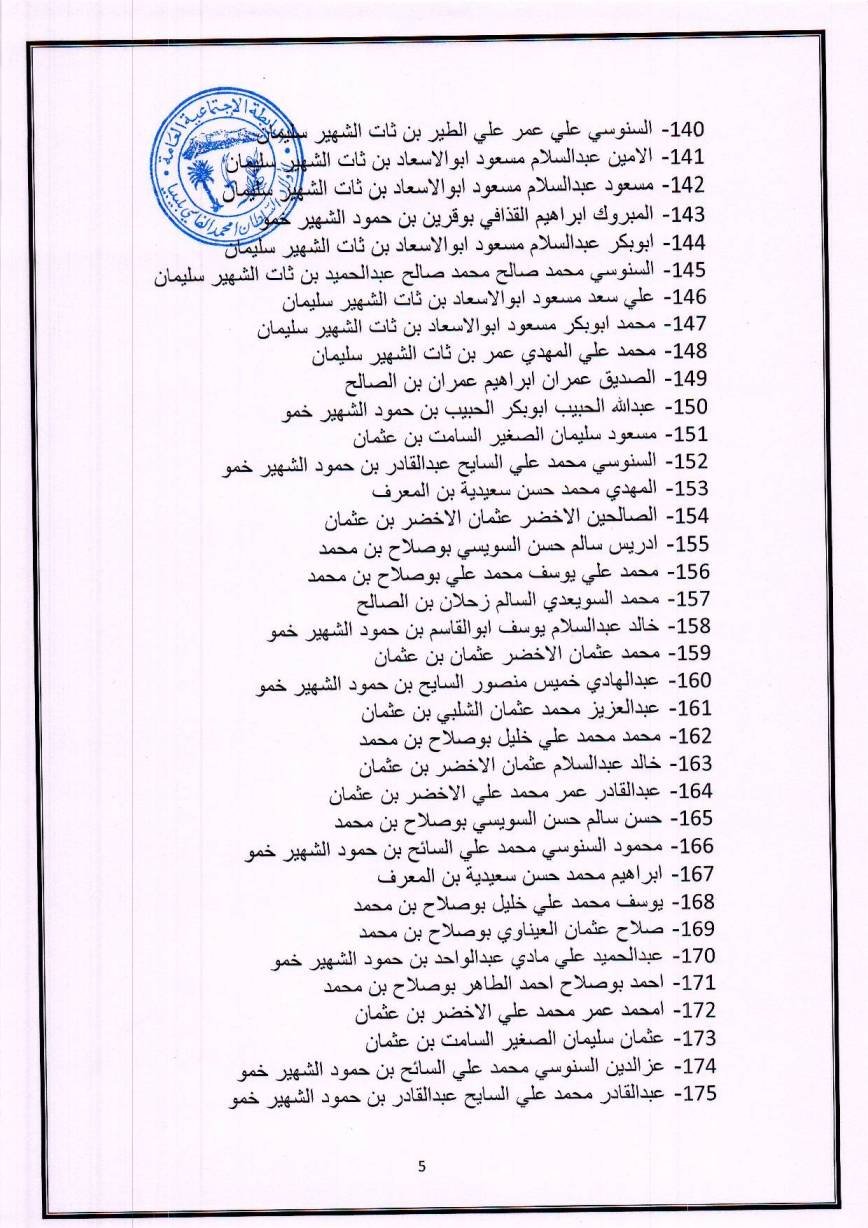 الرابطة الاجتماعية العامة
أولاد السلطان امحمد الفاسي بليبيا
140- السنوسي علي عمر علي الطير بن ثات الشهير سليمان
141- الامين عبدالسلام مسعود ابوالاسعاد بن ثات الشهير سليمان
142- مسعود عبدالسلام مسعود ابوالاسعاد بن ثات الشهير سليمان
143- المبروك ابراهيم القذافي بوقرين بن حمود الشهير خمو
144- ابوبكر عبدالسلام مسعود ابوالاسعاد بن ثات الشهير سليمان
145- السنوسي محمد صالح محمد صالح عبدالحميد بن ثات الشهير سليمان
146- علي سعد مسعود ابوالاسعاد بن ثات الشهير سليمان
147- محمد ابوبكر مسعود ابوالاسعاد بن ثات الشهير سليمان
148- محمد علي المهدي عمر بن ثات الشهير سليمان
149- الصديق عمران ابراهيم عمران بن الصالح
150- عبدالله الحبيب ابوبكر الحبيب بن حمود الشهير خمو
151- مسعود سليمان الصغير السامت بن عثمان
152- السنوسي محمد علي السايح عبدالقادر بن حمود الشهير خمو
153- المهدي محمد حسن سعيدية بن المعرف
154- الصالحين الاخضر عثمان الاخضر بن عثمان
155- ادريس سالم حسن السويسي بوصلاح بن محمد
156- محمد علي يوسف محمد علي بوصلاح بن محمد
157- محمد السويعدي السالم زحلان بن الصالح
158- خالد عبدالسلام يوسف ابوالقاسم بن حمود الشهير خمو
159- محمد عثمان الاخضر عثمان بن عثمان
160- عبدالهادي خميس منصور السايح بن حمود الشهير خمو
161- عبدالعزيز محمد عثمان الشلبي بن عثمان
162- محمد محمد علي خليل بوصلاح بن محمد
163- خالد عبدالسلام عثمان الاخضر بن عثمان
164- عبدالقادر عمر محمد علي الاخضر بن عثمان
165- حسن سالم حسن السويسي بوصلاح بن محمد
166- محمود السنوسي محمد علي السائح بن حمود الشهير خمو
167- ابراهيم محمد حسن سعيدية بن المعرف
168- يوسف محمد علي خليل بوصلاح بن محمد
169- صلاح عثمان العيناوي بوصلاح بن محمد
170- عبدالحميد علي مادي عبدالواحد بن حمود الشهير خمو
171- احمد بوصلاح احمد الطاهر بوصلاح بن محمد
172- امحمد عمر محمد علي الاخضر بن عثمان
173- عثمان سليمان الصغير السامت بن عثمان
174- عزالدين السنوسي محمد علي السائح بن حمود الشهير خمو
175- عبدالقادر محمد علي السايح عبدالقادر بن حمود الشهير خمو
5